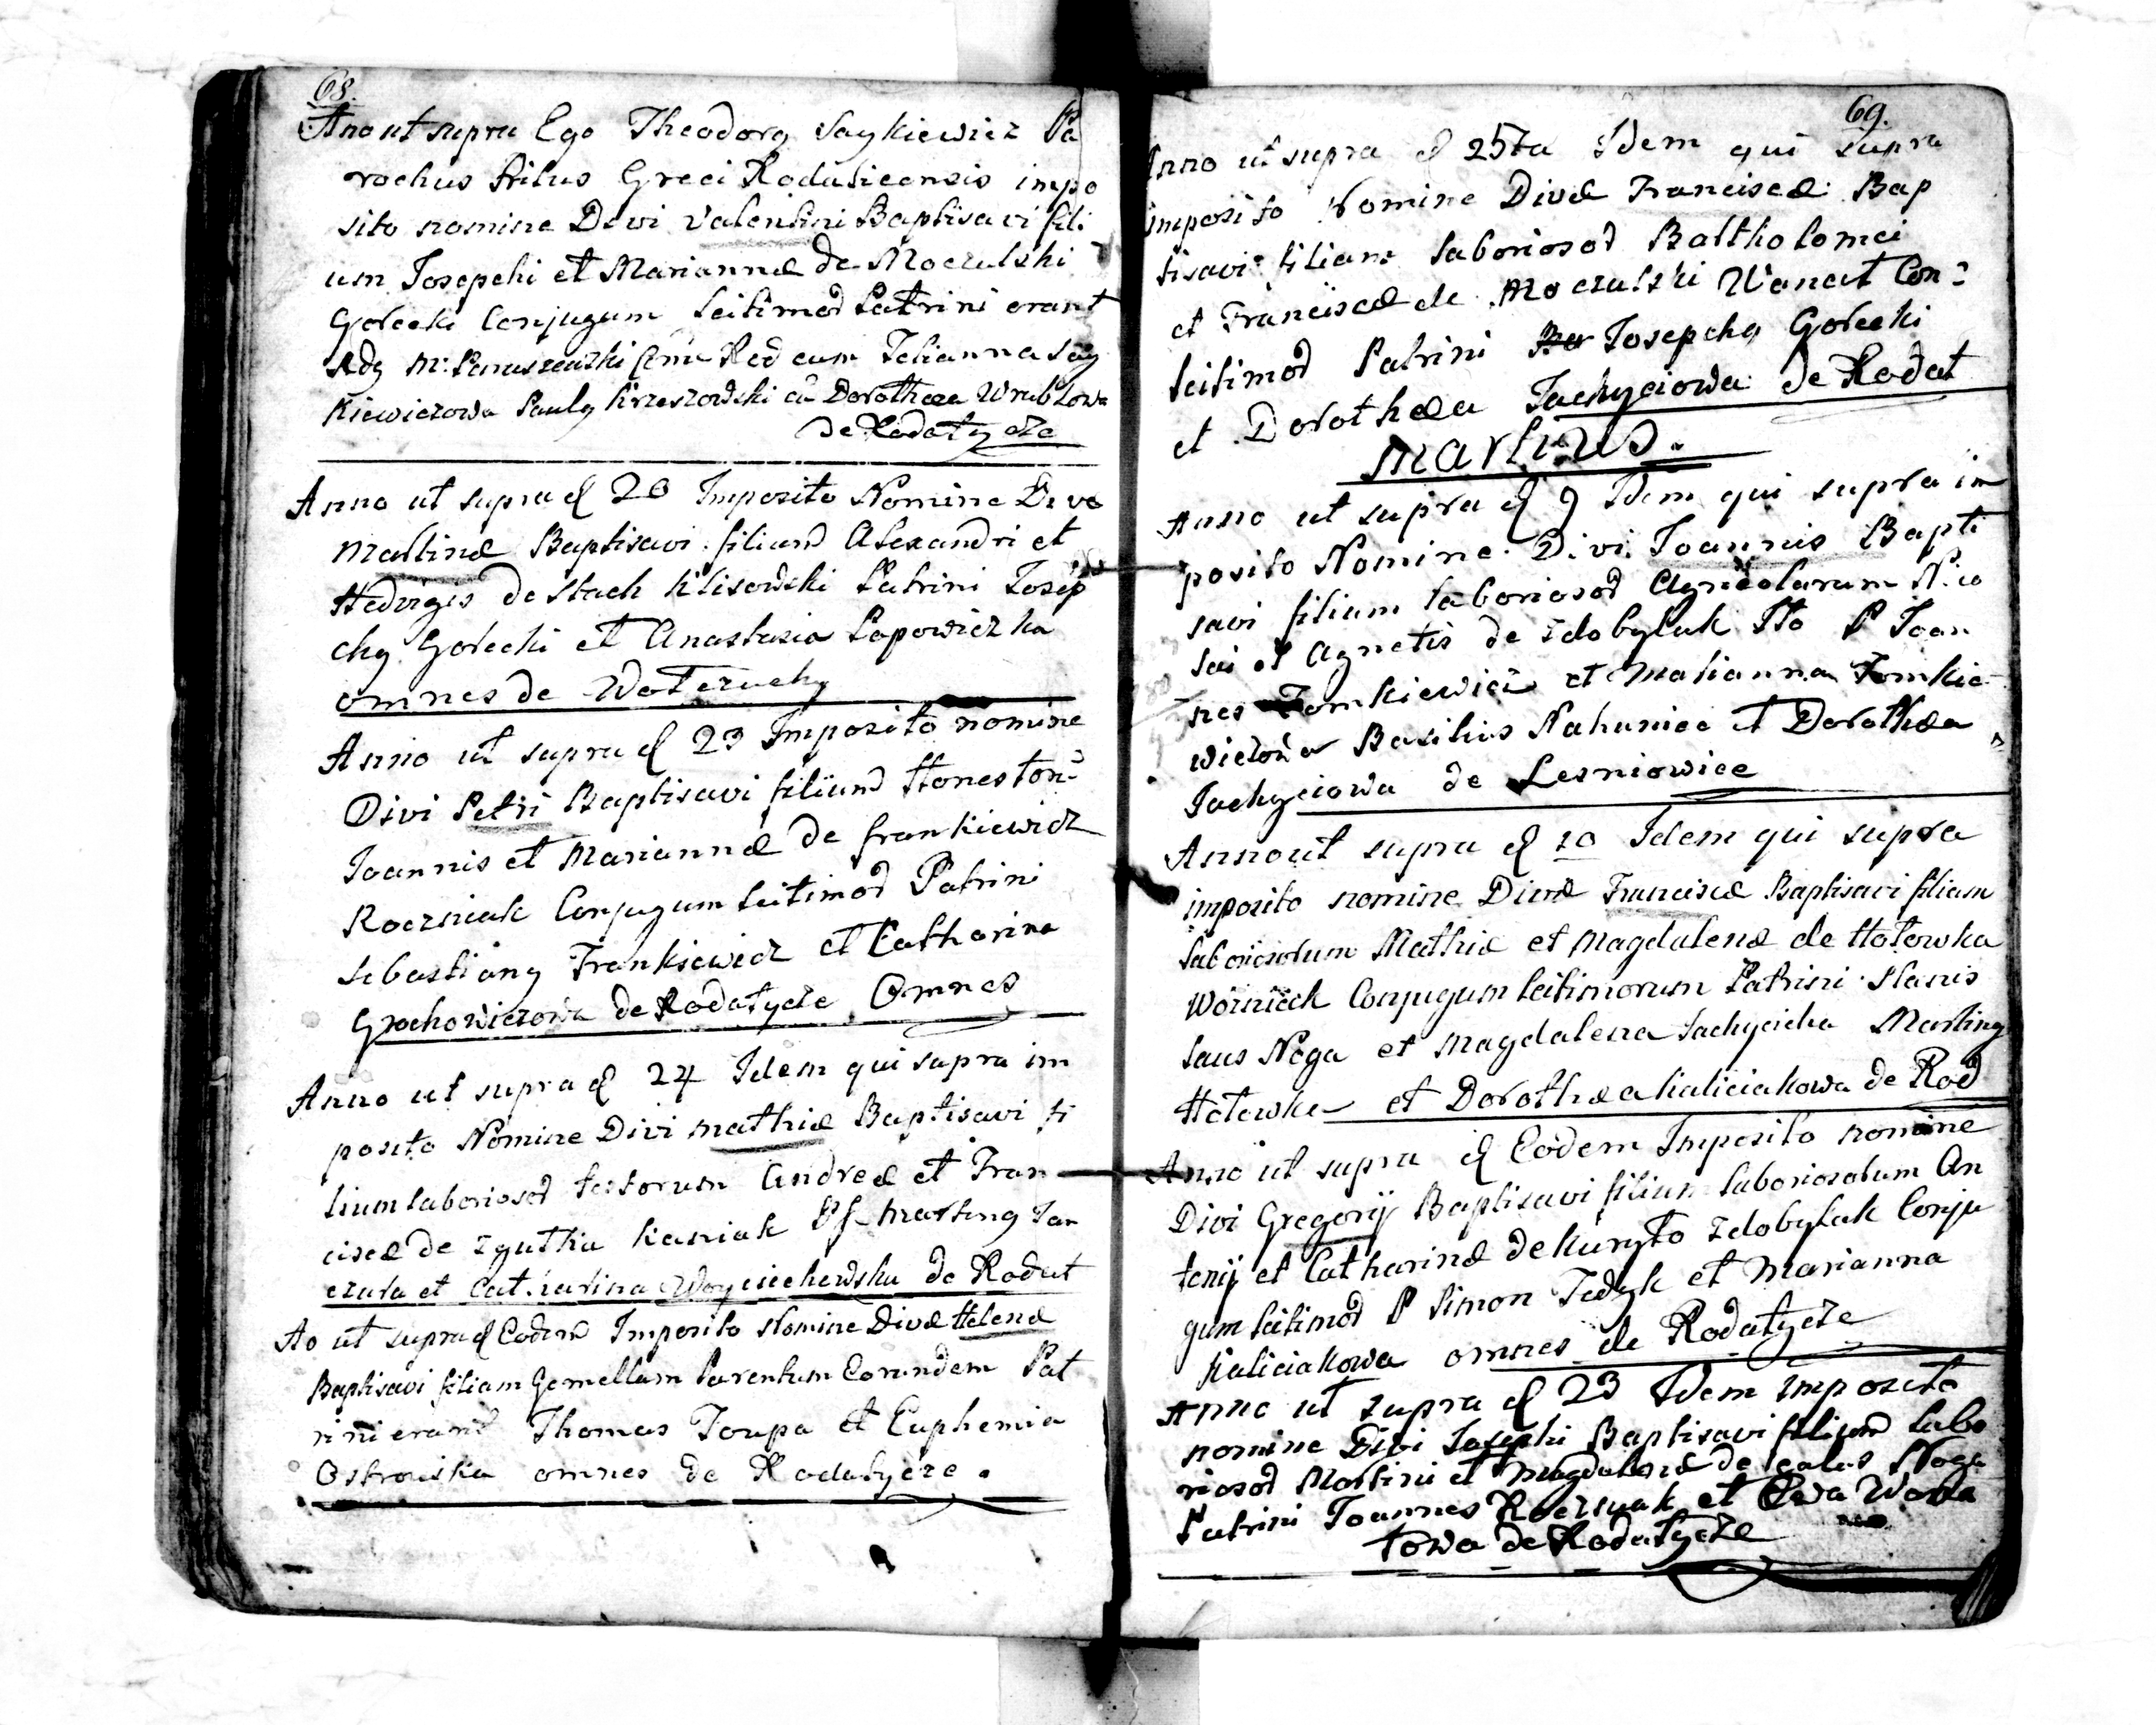 68.
Ano ut supra Ego Theodorg Saykiewicz Pa
rochus Ritus Greci Rodaticensis impo
sito nomine Divi Valentini Baptisavi fili
um Josepchi et Mariannæ de Moczulski
Gorecki Conjugum leitimod Patrini erant
kiewiczowa Paulg Krzeszowski cu Dorothæa Wrublowa
de Rodatycze
Anno ut supra d 20 Imposito Nomine Divæ
Martinæ Baptisavi filiam Alexandri et
Hedvigis de Stach Klisowski Patrini Josep
chg Gorecki et Anastasia Popowiczka
omnes de Wołczuchy
Anno ut supra d 23 Imposito nomine
Divi Petri Baptisavi filium Honeston
Joannis et Mariannæ de frankiewicz
Roczniak Conjugum leitimod Patrini
Sebastiang Frankiewicz et Catharina
Grochowiczowa de Rodatycze Omnes
Anno ut supra d 24 Idem qui supra im
posito Nomine Divi Mathiæ Baptisavi fi
lium laboriosod textorum Andreæ et Fran
ciscæ de Zgutka Kasniak Pf Marting Jan
czura et Catharina Woyciechowska de Rodat
Ao ut supra d Eodem Imposito Nomine Divæ Helenæ
Baptisavi filiam Gemellam Parentum Eorundem Pat
rini erant Thomas Toupa et Euphemia
Ostrowska omnes de Rodatycze.
69.
Anno ut supra d 25ta Idem qui supra
imposito Nomine Divæ Franciscæ Bap
tisavi filiam laboriosod Bartholomei
et Franciscæ de Moczulski Wanat Con:
leitimod Patrini Josepchg Gorecki
et Dorothæa Jachyciowa de Rodat
Martius.
Anno ut supra d 9 Idem qui supra im
posito Nomine Divi Joannis Bapti
savi filium laboriosod Agricolarum Nico
lai et Agnetis de Zdobylak Tto P Joan
nes Tomkiewicz et Marianna Tomkie
wiczowa Basilius Nahuniec et Dorothæa
Jachyciowa de Lesniowice
Anno ut supra d 10 Idem qui supra
imposito nomine Divæ Franciscæ Baptisavi filiam
laboriosorum Mathiæ et Magdalenæ de Hotowka
Wozniack Conjugum leitimorum Patrini Stanis
laus Noga et Magdalena Jachycicha Marting
Hotowka et Dorothæa Kaliciakowa de Rod
Anno ut supra d Eodem Imposito nomine
Divi Gregorij Baptisavi filium laboriosorum An
tonij et Catharinæ de Kuryło Zdobylak Conju
gum leitimod P Simon Jedyk et Marianna
Kaliciakowa omnes de Rodatycze
Anno ut supra d 23 Idem imposito
nomine Divi Josephi Baptisavi filium labo
riosod Martini et Magdalenæ de Noga
Patrini Joannes Roczniak et Ewa Woda
towa de Rodatycze